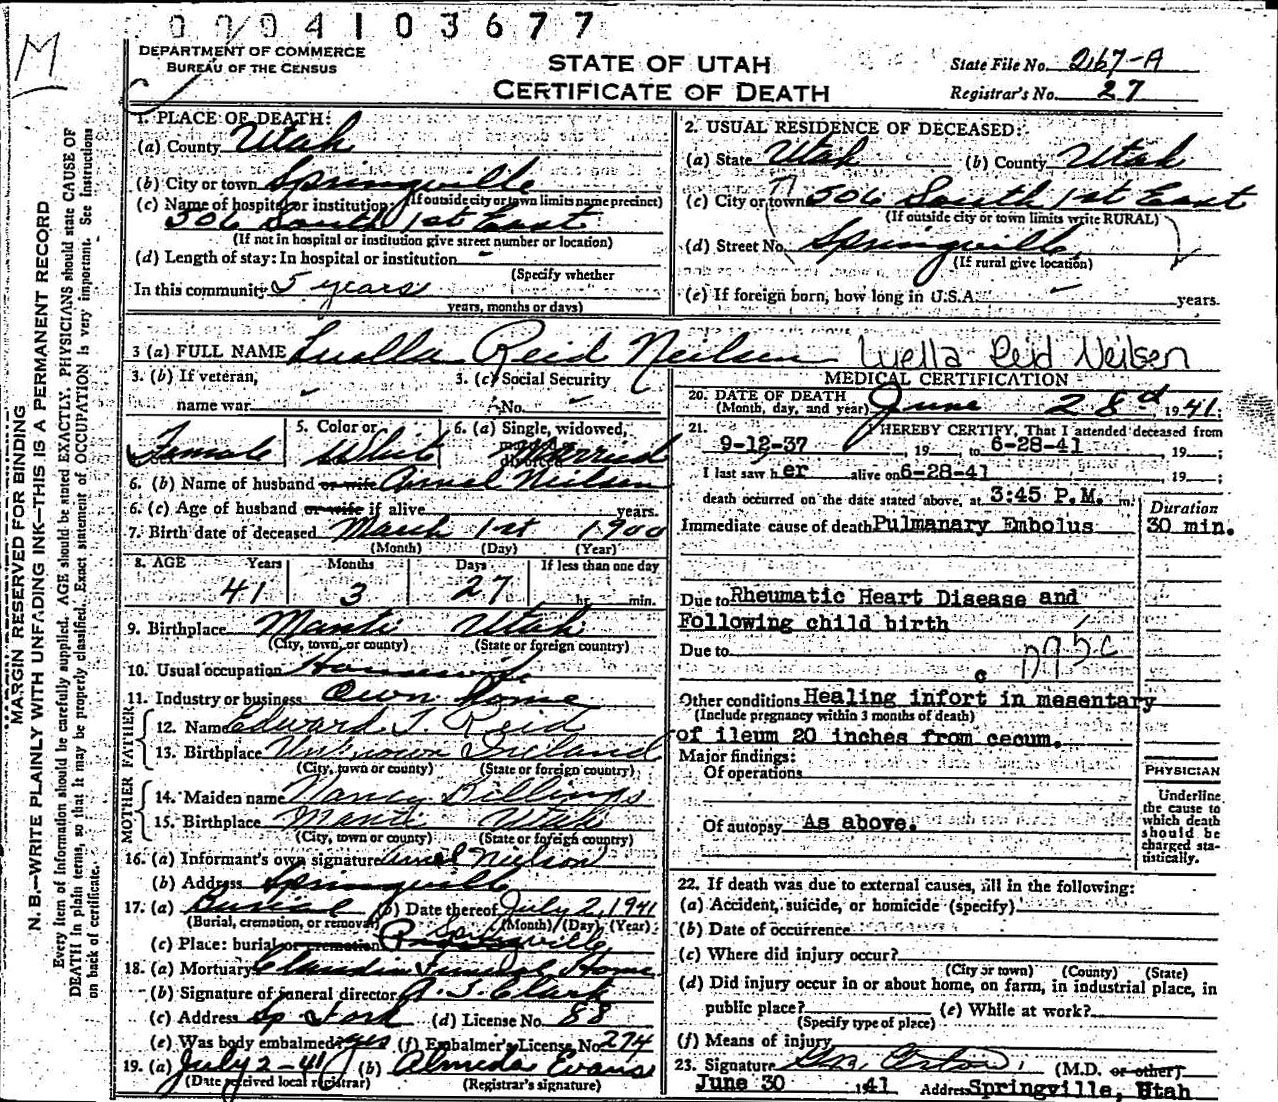 0 0 0 4 1 0 3 6 7 7
M
DEPARTMENT OF COMMERCE
BUREAU OF THE CENSUS
STATE OF UTAH
CERTIFICATE OF DEATH
State File No. 2167-A
Registrar's No. 27
MARGIN RESERVED FOR BINDING
N. B.—WRITE PLAINLY WITH UNFADING INK—THIS IS A PERMANENT RECORD
Every item of information should be carefully supplied. AGE should be stated EXACTLY. PHYSICIANS should state CAUSE OF
DEATH in plain terms, so that it may be properly classified. Exact statement of OCCUPATION is very important. See Instructions
on back of certificate.
1. PLACE OF DEATH:
(a) County Utah
(b) City or town Springville
(If outside city or town limits name precinct)
(c) Name of hospital or institution:
506 South 1st East
(If not in hospital or institution give street number or location)
(d) Length of stay: In hospital or institution -
(Specify whether
In this community 5 years
years, months or days)
2. USUAL RESIDENCE OF DECEASED:
(a) State Utah (b) County Utah
(c) City or town 506 South 1st East
(If outside city or town limits write RURAL)
(d) Street No. Springville
(If rural give location)
(e) If foreign born, how long in U.S.A. years.
3 (a) FULL NAME Luella Reid Neilsen Luella Reid Neilsen
3. (b) If veteran,
name war
3. (c) Social Security
No.
Female
5. Color or
White
6. (a) Single, widowed,
Married
6. (b) Name of husband or wife Neilsen
6. (c) Age of husband or wife if alive years.
7. Birth date of deceased March 1st 1900
(Month) (Day) (Year)
8. AGE Years Months Days If less than one day
41 3 27 hr. min.
9. Birthplace Manti Utah
(City, town, or county) (State or foreign country)
10. Usual occupation Housewife
11. Industry or business Own home
FATHER
12. Name Edward T. Reid
13. Birthplace Unknown Ireland
(City, town or county) (State or foreign country)
MOTHER
14. Maiden name Nancy Billings
15. Birthplace Manti Utah
(City, town or county) (State or foreign country)
16. (a) Informant's own signature Nielson
(b) Address Springville
17. (a) Burial (b) Date thereof July 2, 1941
(Burial, cremation, or removal) (Month) (Day) (Year)
(c) Place: burial or cremation Springville
18. (a) Mortuary Claudin Funeral Home
(b) Signature of funeral director A. Y. Clark
(c) Address Sp Fork (d) License No. 88
(e) Was body embalmed? yes (f) Embalmer's License No. 274
19. (a) July 2-41 (b) Almeda Evans
(Date received local registrar) (Registrar's signature)
MEDICAL CERTIFICATION
20. DATE OF DEATH
(Month, day, and year) June 28th 1941
21. I HEREBY CERTIFY, That I attended deceased from
9-12-37, 19, to 6-28-41, 19;
I last saw her alive on 6-28-41, 19;
death occurred on the date stated above, at 3:45 P.M. m.
Duration
Immediate cause of death Pulmanary Embolus 30 min.
Due to Rheumatic Heart Disease and
Following child birth
Due to
c
Other conditions Healing infort in mesentary
(Include pregnancy within 3 months of death)
of ileum 20 inches from cecum.
Major findings:
Of operations
Of autopsy As above.
PHYSICIAN
Underline
the cause to
which death
should be
charged sta-
tistically.
22. If death was due to external causes, fill in the following:
(a) Accident, suicide, or homicide (specify)
(b) Date of occurrence
(c) Where did injury occur?
(City or town) (County) (State)
(d) Did injury occur in or about home, on farm, in industrial place, in
public place? (e) While at work?
(Specify type of place)
(f) Means of injury
23. Signature Orton (M.D. or other)
June 30 1941 Address Springville, Utah